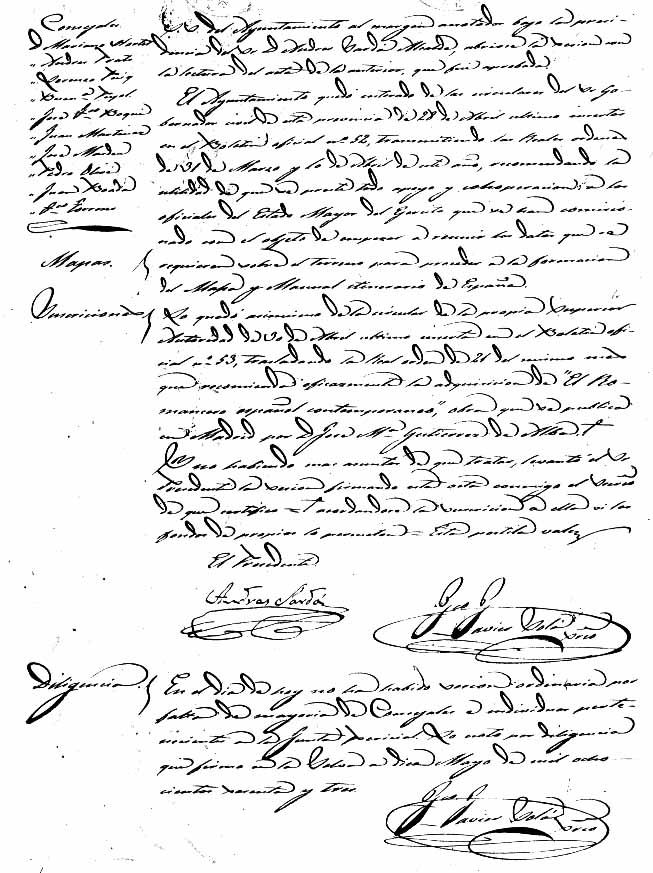 Concejales
D. Mariano
" Andres
" Lorenzo Puig
" Juan
" José
" Juan Martinez
" José
" Pedro Oliva
" Juan Badia
S. S. del Ayuntamiento al margen anotados bajo la presi-
dencia del Sr. D. Andres Sardá abriose la sesion con
la lectura del acta de la anterior, que fué aprobada.
El Ayuntamiento quedó enterado de las circulares del Sr. Go-
bernador civil de esta provincia de 28 de Abril ultimo insertas
en el Boletin oficial nº 52, transmitiendo las Reales ordenes
de 31 de Marzo y 10 de Abril de este año, recomendando la
utilidad de que se preste todo apoyo y cooperacion á los
oficiales del Estado Mayor del Ejercito que se han comisio-
nado con el objeto de empezar á reunir los datos que se
Mapas.
requieran sobre el terreno para proceder á la formacion
del Mapa y Manual itinerario de España.
Suscriciones
Lo quedó asimismo de la circular de la propia Superior
Autoridad de 30 de Abril ultimo inserta en el Boletin ofi-
cial nº 53, trasladando la Real orden de 21 del mismo mes
que recomienda eficazmente la adquisicion de "El Ro-
mancero español contemporaneo", obra que se publica
en Madrid por D. José Mª Gutierrez de Alba †
Y no habiendo mas asuntos de que tratar, levantó el Sr.
Presidente la sesion firmando esta acta conmigo el Srio
de que certifico = † acordandose la suscricion á ella si los
fondos de propios lo permiten = Esta postila valez
El Presidente
Andres Sardá
Javier
Srio
Diligencia.
En el dia de hoy no ha habido sesion ordinaria por
falta de mayoria de Concejales é individuos perte-
necientes á la Junta pericial. Lo noto por diligencia
que firmo en la á diez Mayo de mil ocho-
cientos sesenta y tres.
Javier
Srio